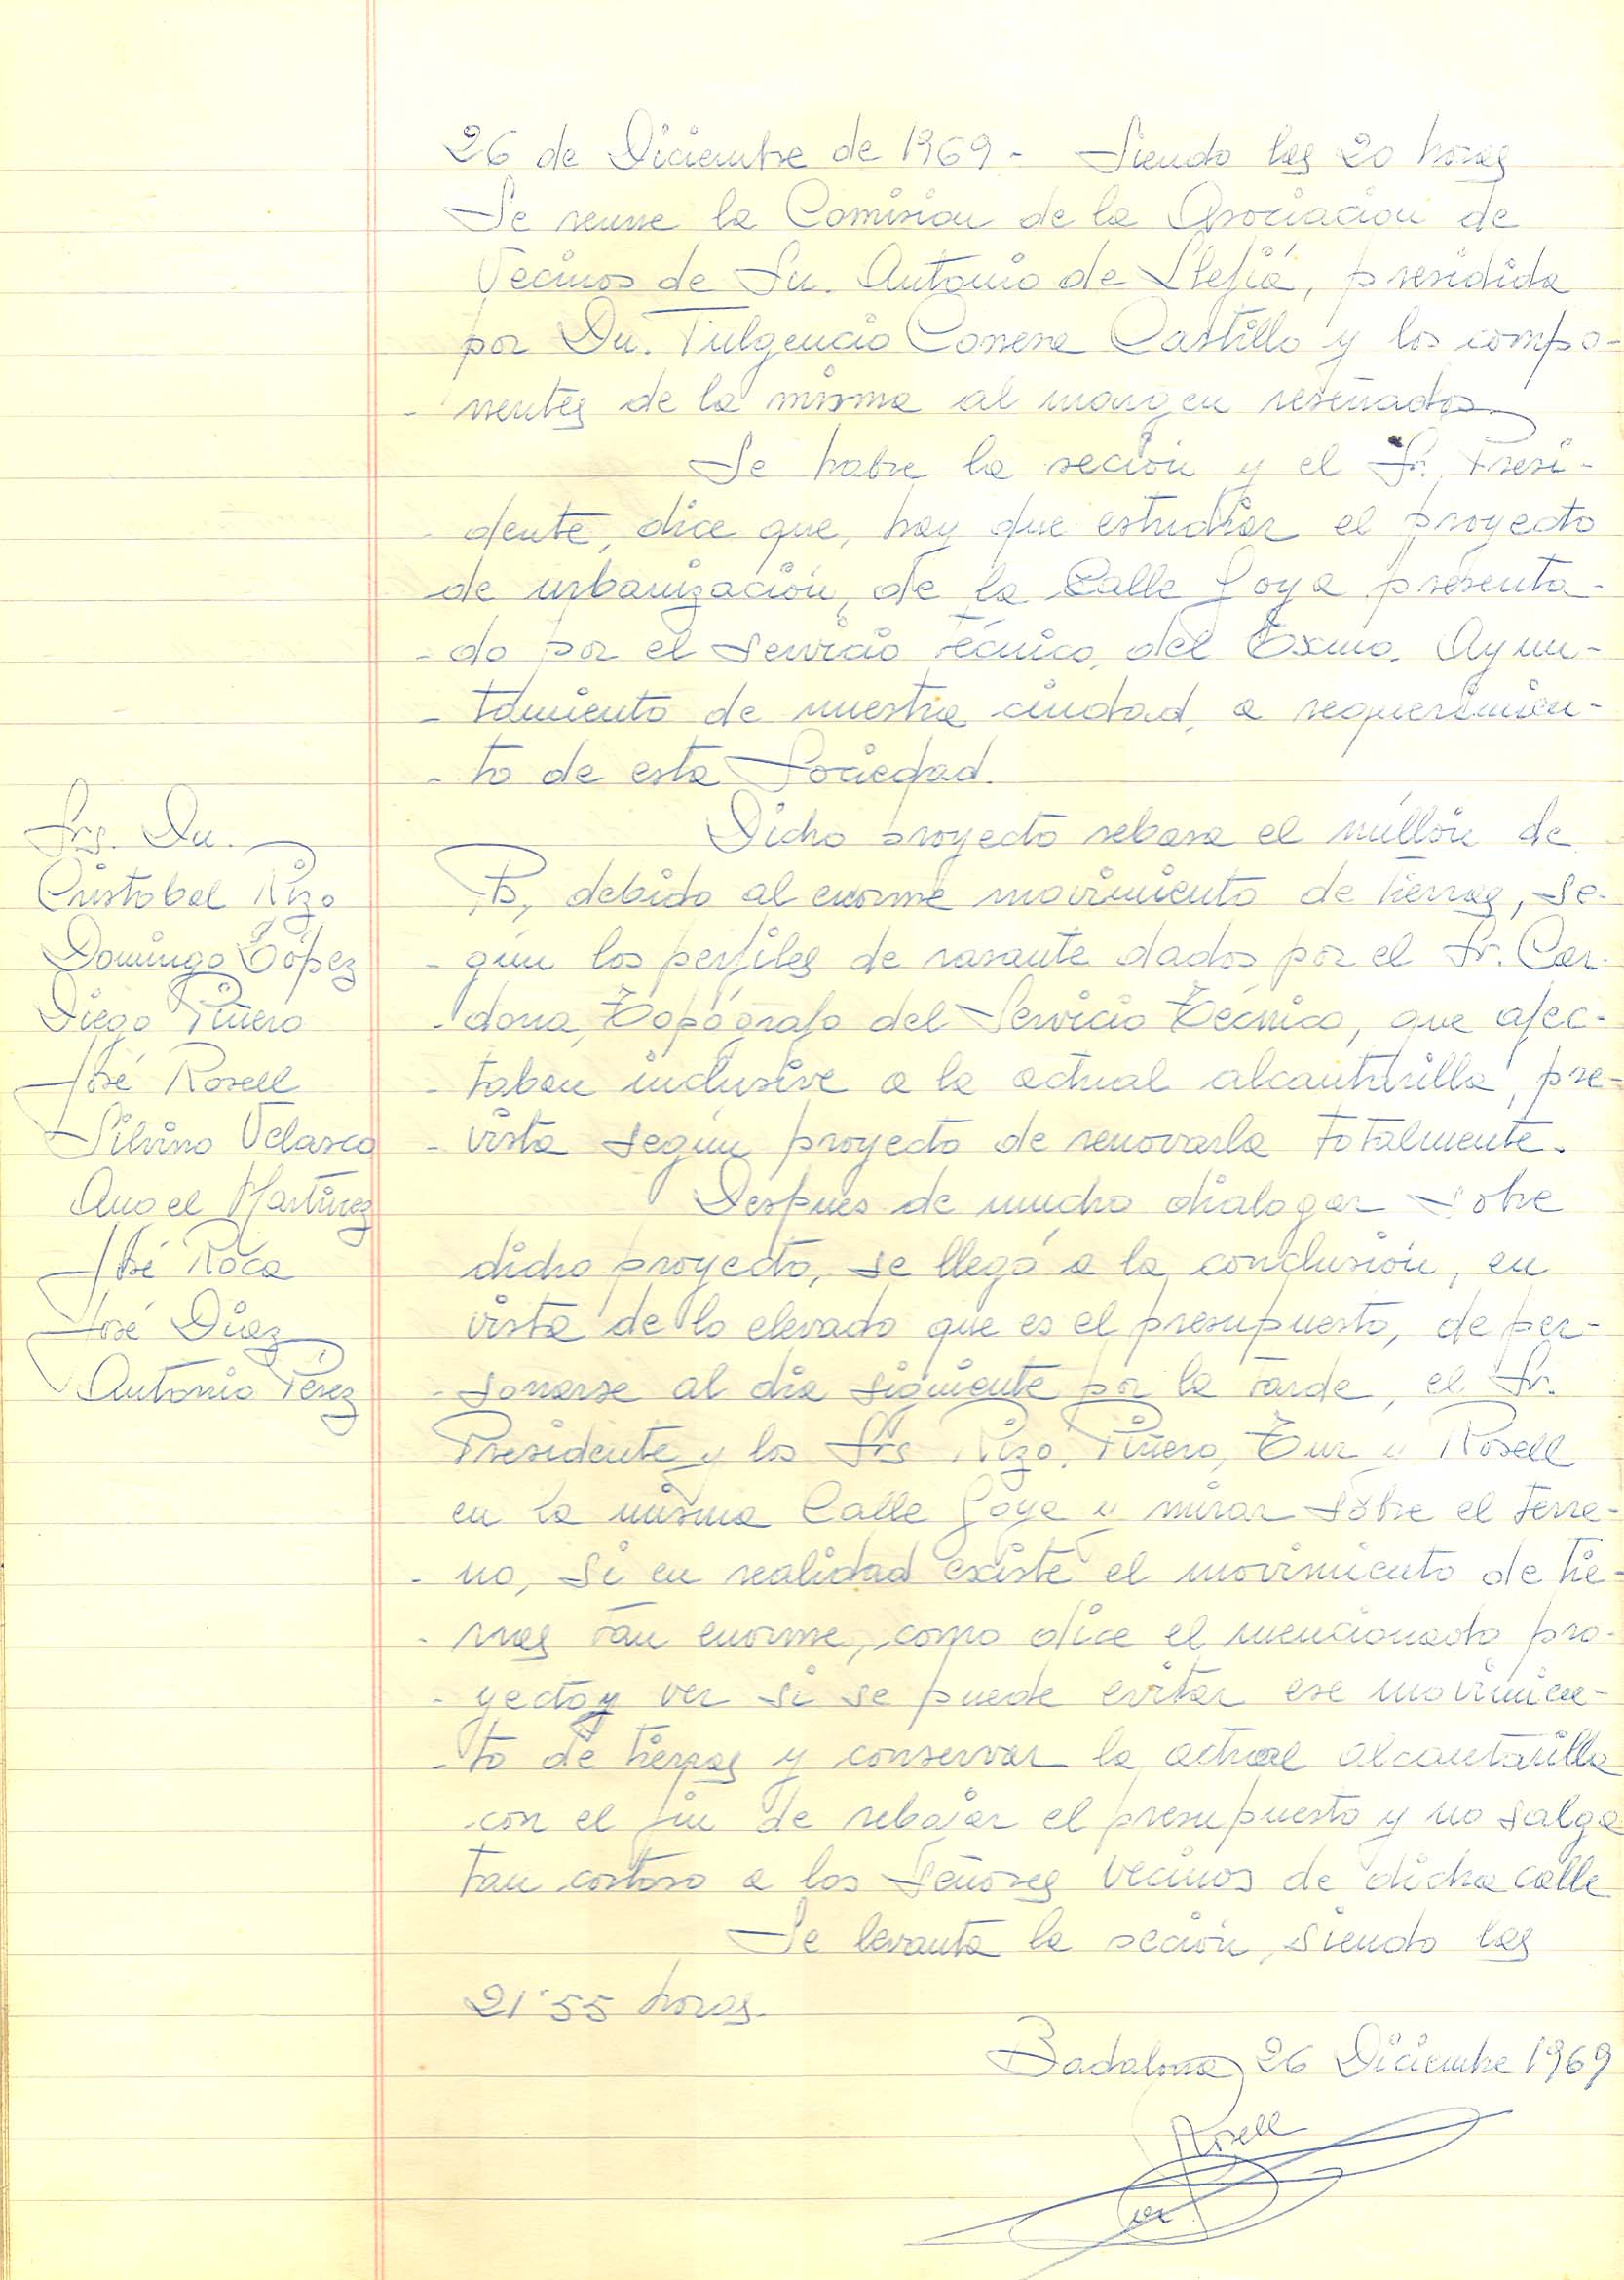 26 de Diciembre de 1969 - Siendo las 20 horas
Se reune la Comision de la Asociacion de
Vecinos de Sn. Antonio de Llefiá, presidida
por Dn. Fulgencio Conesa Castillo y los compo-
- nentes de la misma al margen reseñados.
Se habre la seción y el Sr. Presi-
- dente, dice que, hay que estudiar el proyecto
de urbanización, de la Calle Goya presenta-
- do por el Servicio Técnico, del Exmo. Ayun-
- tamiento de nuestra ciudad, a requerimien-
- to de esta Sociedad.
Dicho proyecto rebasa el millón de
Pts, debido al enorme movimiento de tierras, se-
- gún los perfiles de rasante dados por el Sr. Car-
- dona, Topógrafo del Servicio Técnico, que afec-
- taban inclusive a la actual alcantirilla, pre-
- vista según proyecto de renovarla totalmente.
Después de mucho dialogar sobre
dicho proyecto, se llegó a la conclusión, en
vista de lo elevado que es el presupuesto, de per-
- sonarse al dia siguiente por la tarde, el Sr.
Presidente y los Srs Rizo, Piñero, Tur y Rosell
en la misma Calle Goya y mirar sobre el terre-
- no, si en realidad existe el movimiento de tie-
- rras tan enorme, como dice el mencionado pro-
- yecto y ver si se puede evitar ese movimien-
- to de tierras y conservar la actual alcantarilla
con el fin de rebajar el presupuesto y no salga
tan costoso a los Señores vecinos de dicha calle
Se levanta la seción, siendo las
21'55 horas.
Badalona 26 Diciembre 1969
Rosell
Srs. Dn.
Cristobal Rizo
Domingo López
Diego Piñero
José Rosell
Silvino Velasco
Angel Martinez
José Roca
José Diaz
Antonio Pérez